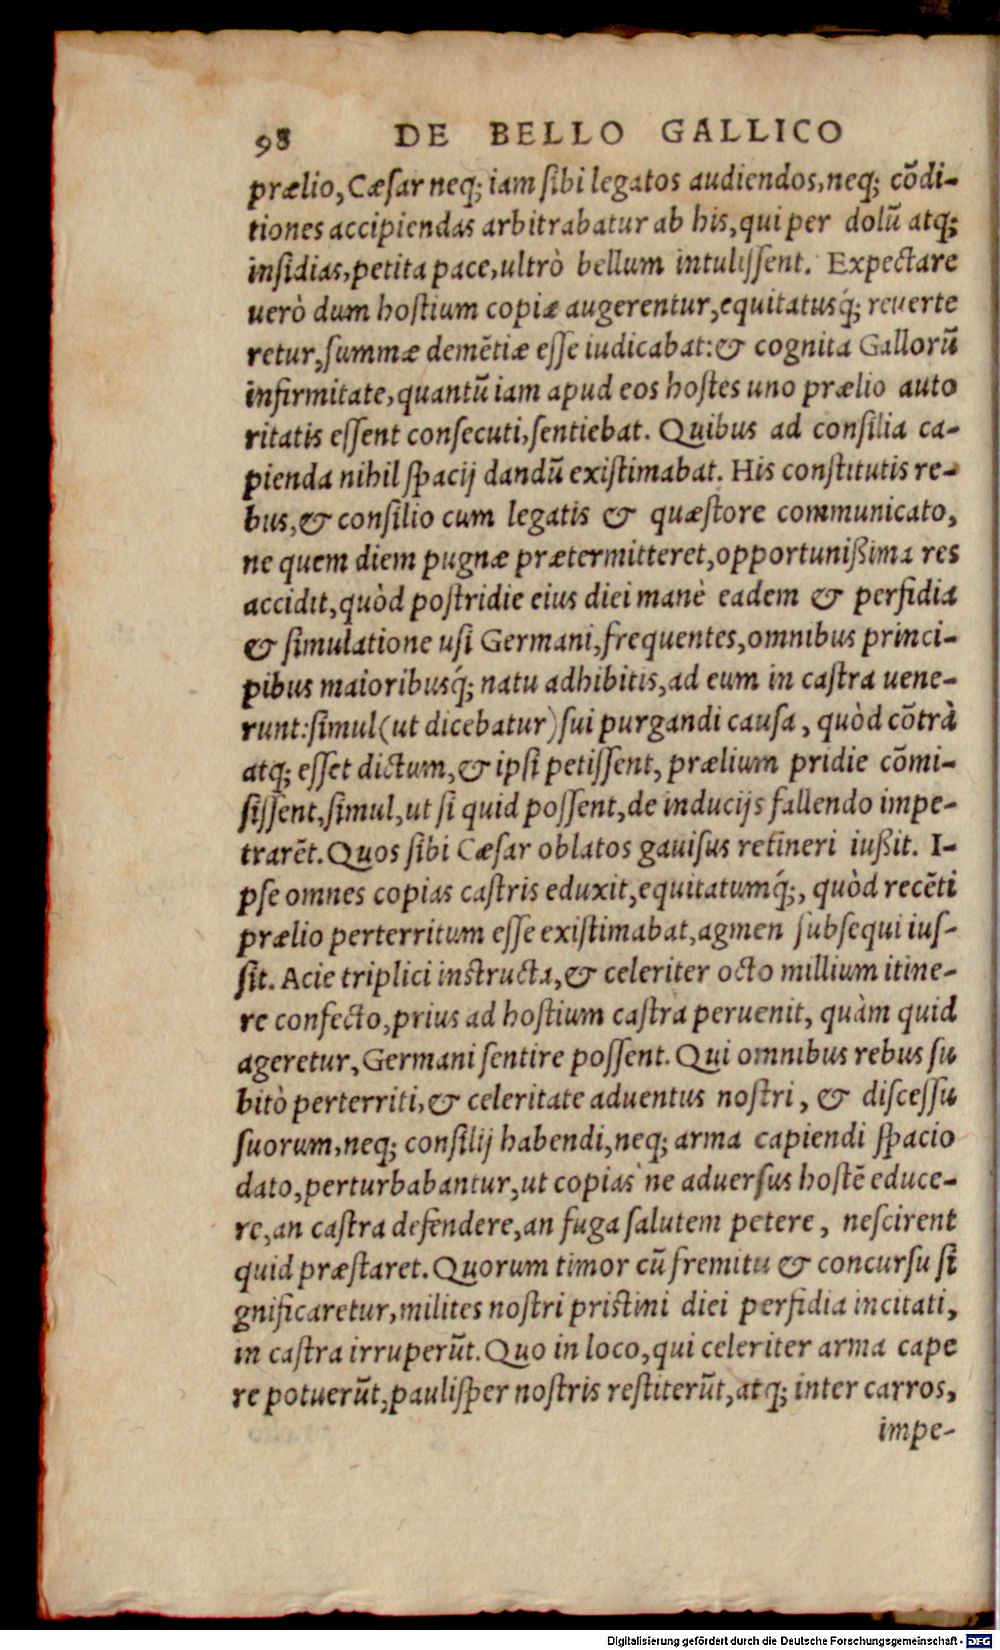 98 DE BELLO GALLICO
prælio, Cæſar neq; iam ſibi legatos audiendos, neq; cõdi-
tiones accipiendas arbitrabatur ab his, qui per dolũ atq;
inſidias, petita pace, ultrò bellum intuliſſent. Expectare
uerò dum hoſtium copiæ augerentur, equitatusq́; reuerte
retur, ſummæ demẽtiæ eſſe iudicabat: & cognita Gallorũ
infirmitate, quantũ iam apud eos hoſtes uno prælio auto
ritatis eſſent conſecuti, ſentiebat. Quibus ad conſilia ca-
pienda nihil ſpacij dandũ exiſtimabat. His conſtitutis re-
bus, & conſilio cum legatis & quæſtore communicato,
ne quem diem pugnæ prætermitteret, opportunißima res
accidit, quòd poſtridie eius diei manè eadem & perfidia
& ſimulatione uſi Germani, frequentes, omnibus princi-
pibus maioribusq́; natu adhibitis, ad eum in caſtra uene-
runt: ſimul (ut dicebatur) ſui purgandi cauſa, quòd cõtrà
atq; eſſet dictum, & ipſi petiſſent, prælium pridie cõmi-
ſiſſent, ſimul, ut ſi quid poſſent, de inducijs fallendo impe-
trarẽt. Quos ſibi Cæſar oblatos gauiſus retineri iußit. I-
pſe omnes copias caſtris eduxit, equitatumq́;, quòd recẽti
prælio perterritum eſſe exiſtimabat, agmen ſubſequi iuſ-
ſit. Acie triplici inſtructa, & celeriter octo millium itine-
re confecto, prius ad hoſtium caſtra peruenit, quàm quid
ageretur, Germani ſentire poſſent. Qui omnibus rebus ſu
bitò perterriti, & celeritate aduentus noſtri, & diſceſſu
ſuorum, neq; conſilij habendi, neq; arma capiendi ſpacio
dato, perturbabantur, ut copias ne aduerſus hoſtẽ educe-
re, an caſtra defendere, an fuga ſalutem petere, neſcirent
quid præſtaret. Quorum timor cũ fremitu & concurſu ſi
gnificaretur, milites noſtri priſtini diei perfidia incitati,
in caſtra irruperũt. Quo in loco, qui celeriter arma cape
re potuerũt, pauliſper noſtris reſtiterũt, atq; inter carros,
impe-
Digitalisierung gefördert durch die Deutsche Forschungsgemeinschaft - DFG